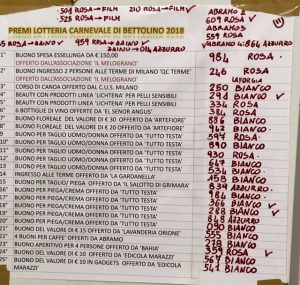 .504 ROSA→FILM 210 ROSA→FILM
.525 ROSA→FILM
ABRAMO 2
609 ROSA
ABRAMO 3
559 ROSA
ABRAMO 4: 864 AZZURRO
959 ROSA→ZAINO
ZAINO→014 AZZURRO
PREMI LOTTERIA CARNEVALE DI BETTOLINO 2018
1° BUONO SPESA ESSELUNGA DA € 150,00 984 ROSA
OFFERTO DALL'ASSOCIAZIONE 'IL MELOGRANO'
2° BUONO INGRESSO 2 PERSONE ALLE TERME DI MILANO 'QC TERME' 246 ROSA
OFFERTO DALL'ASSOCIAZIONE 'IL MELOGRANO'
3° CORSO DI CANOA OFFERTO DAL C.U.S. MILANO 250 BIANCO
BEAUTY CON PRODOTTI LINEA 'LICHTENA' PER PELLI SENSIBILI 294 BIANCO
BEAUTY CON PRODOTTI LINEA 'LICHTENA' PER PELLI SENSIBILI 334 ROSA
6 BOTTIGLIE DI VINO OFFERTE DA 'EL SENOR ANGUS' 384 ROSA
BUONO FLOREALE DEL VALORE DI € 30 OFFERTO DA 'ARTEFIORE' 886 BIANCO
BUONO FLOREALE DEL VALORE DI € 20 OFFERTO DA 'ARTEFIORE' 942 BIANCO
BUONO PER TAGLIO UOMO/DONNA OFFERTO DA 'TUTTO TESTA' 597 ROSA
BUONO PER TAGLIO UOMO/DONNA OFFERTO DA 'TUTTO TESTA' 890 BIANCO
BUONO PER TAGLIO UOMO/DONNA OFFERTO DA 'TUTTO TESTA' 930 ROSA
BUONO PER TAGLIO UOMO/DONNA OFFERTO DA 'TUTTO TESTA' 647 BIANCO
BUONO PER TAGLIO UOMO/DONNA OFFERTO DA 'TUTTO TESTA' 534 BIANCO
INGRESSO ALLE TERME OFFERTO DA 'LA GARDANELLA' 158 BIANCO
BUONO PER TAGLIO/ PIEGA OFFERTO DA 'IL SALOTTO DI GRIMARA' 839 AZZURRO
BUONO PER PIEGA/CREMA OFFERTO DA 'TUTTO TESTA' 984 BIANCO
BUONO PER PIEGA/CREMA OFFERTO DA 'TUTTO TESTA' 366 BIANCO
BUONO PER PIEGA/CREMA OFFERTO DA 'TUTTO TESTA' 288 BIANCO
BUONO PER PIEGA/CREMA OFFERTO DA 'TUTTO TESTA' 848 AZZURRO
BUONO DEL VALORE DI € 15 OFFERTO DA 'LAVANDERIA ORIONE' 090 BIANCO
4 BUONI PER CAFFE' OFFERTI DA ABRAMO 555 BIANCO
BUONO APERITIVO PER 4 PERSONE OFFERTO DA 'BAHIA' 218 BIANCO
BUONO DEL VALORE DI € 10 OFFERTO DA 'EDICOLA MARAZZI' 359 ROSA
BUONO DEL VALORE DI € 10 IN GADGETS OFFERTO DA 'EDICOLA 567 BIANCO
MARAZZI' 541 BIANCO